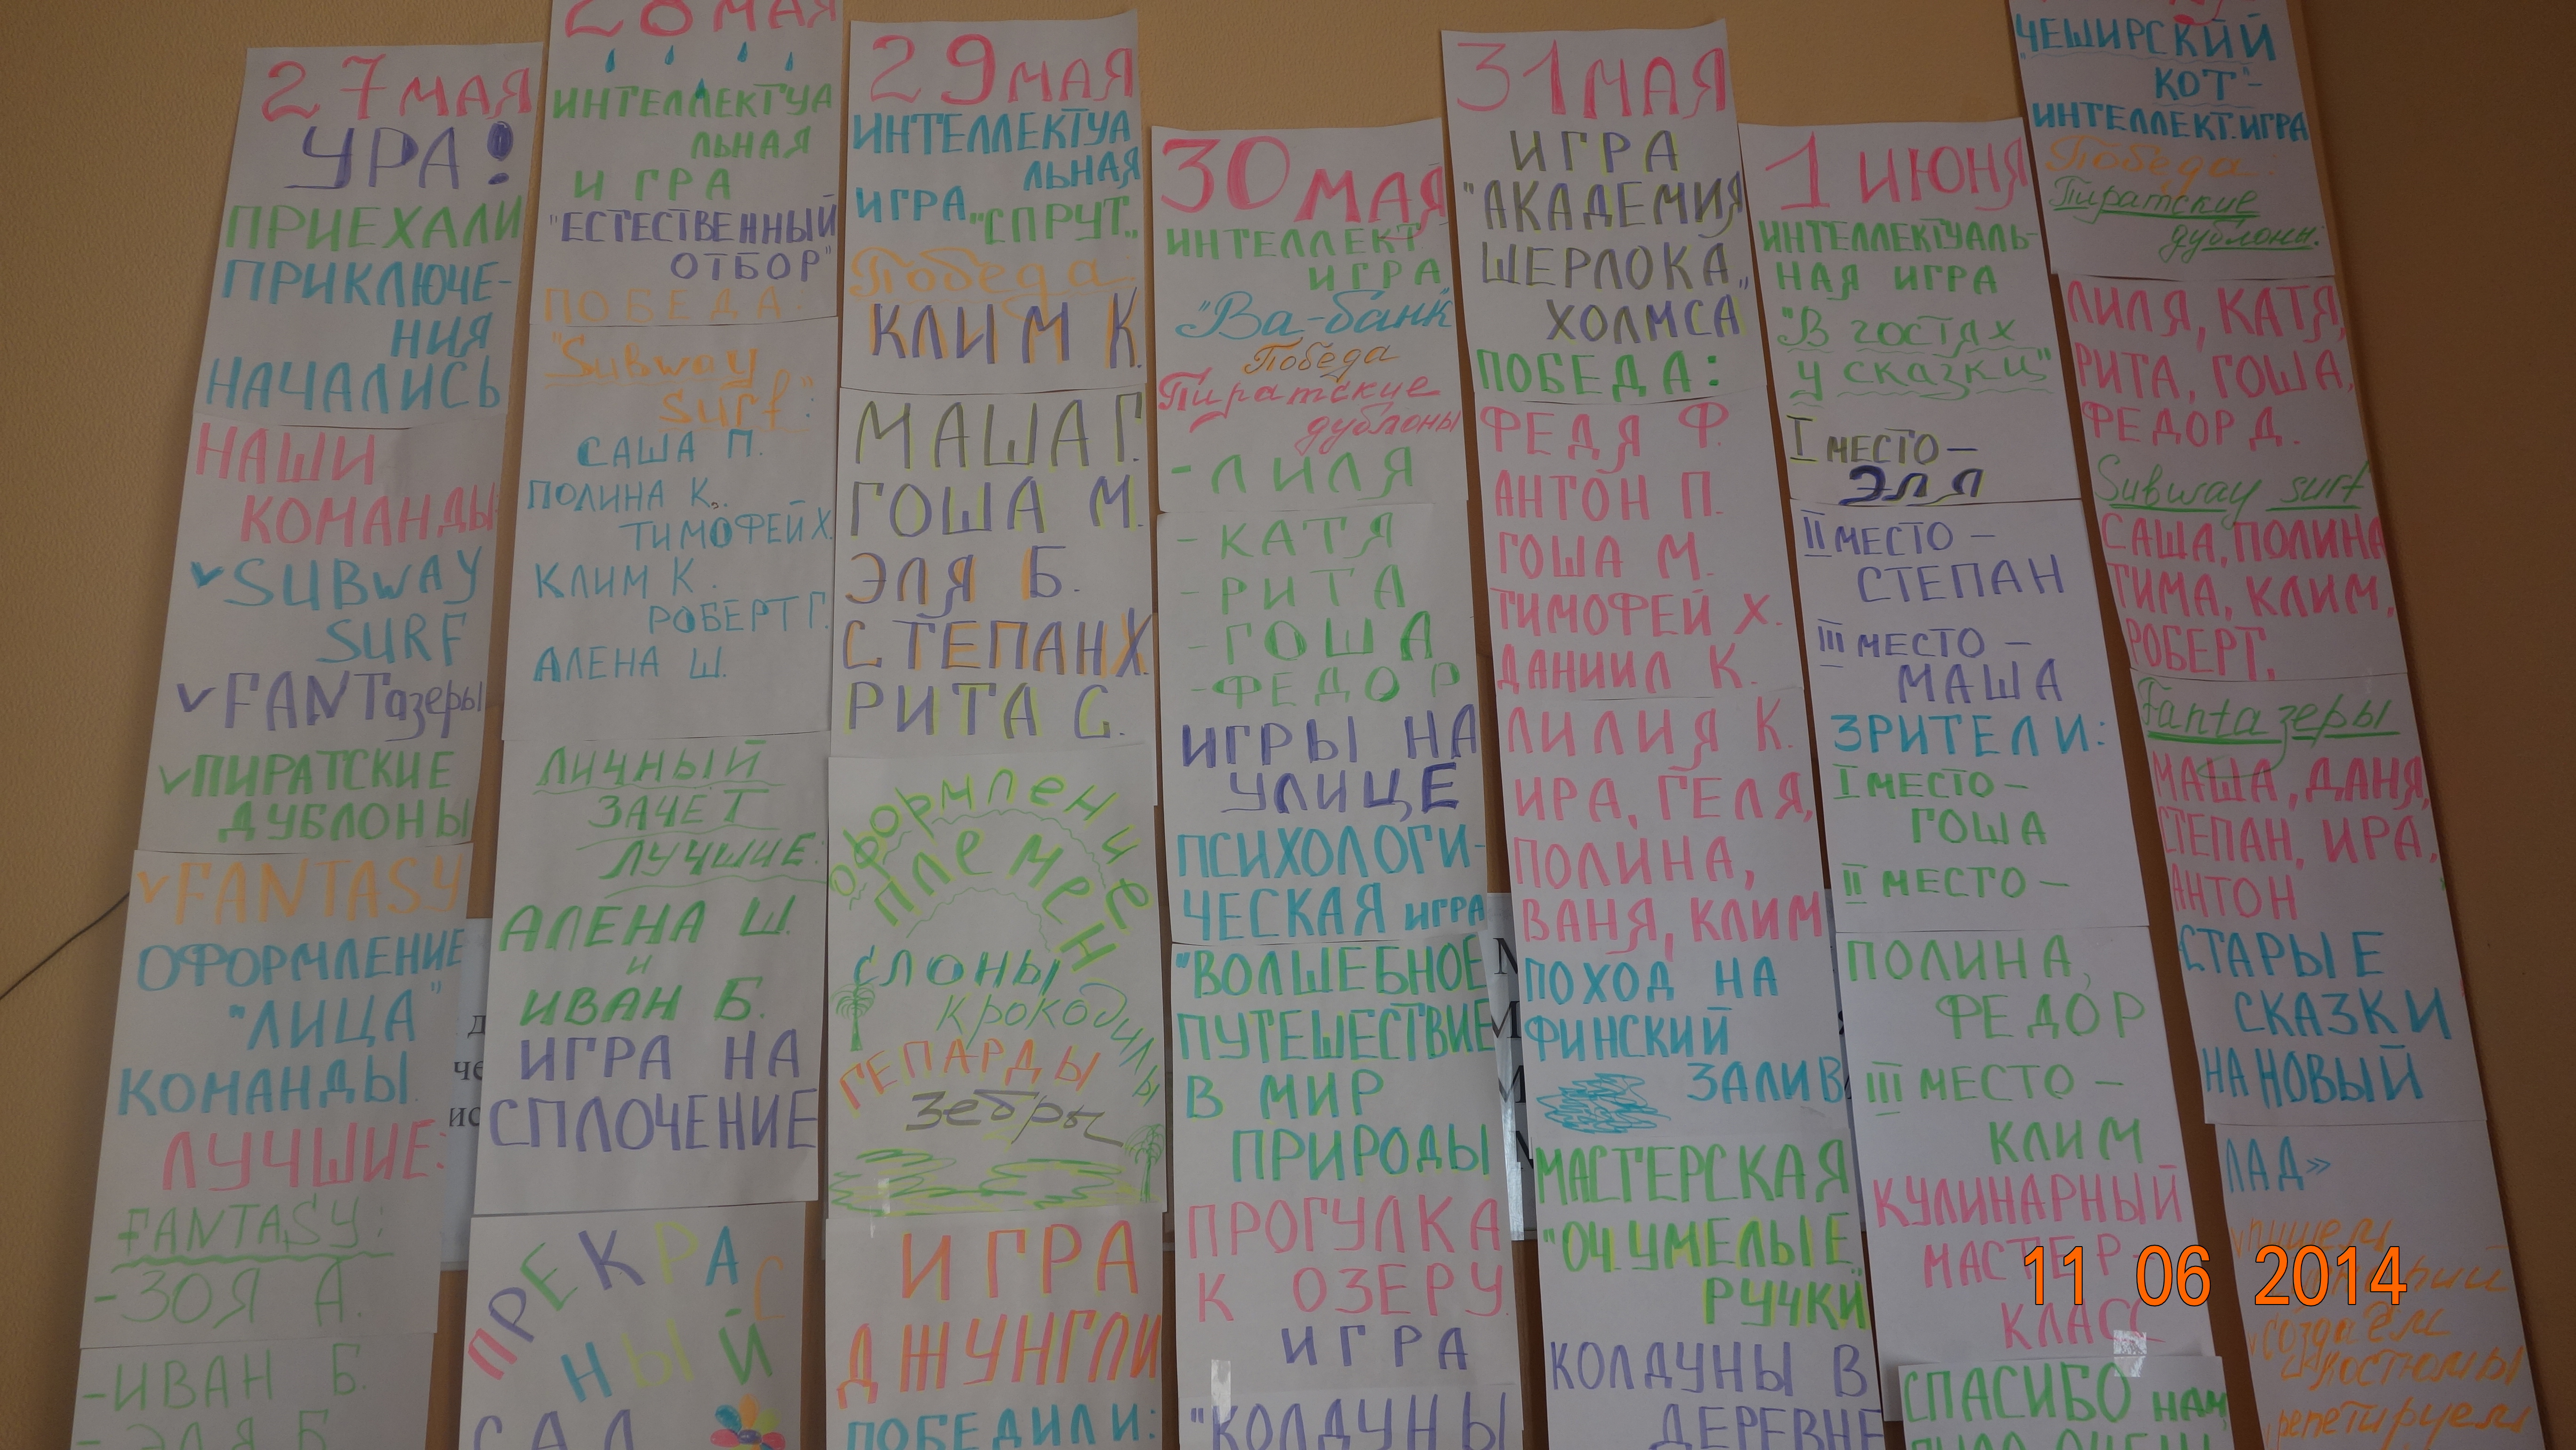 27 МАЯ
УРА!
ПРИЕХАЛИ
ПРИКЛЮЧЕ-
НИЯ
НАЧАЛИСЬ
НАШИ
КОМАНДЫ
✓SUBWAY
SURF
✓FANTазеры
✓ПИРАТСКИЕ
ДУБЛОНЫ
✓FANTASY
ОФОРМЛЕНИЕ
"ЛИЦА"
КОМАНДЫ
ЛУЧШИЕ:
FANTASY:
-ЗОЯ А.
-ИВАН Б.
-ЭЛЯ Б.
28 МАЯ
ИНТЕЛЛЕКТУА
ЛЬНАЯ
ИГРА
"ЕСТЕСТВЕННЫЙ
ОТБОР"
ПОБЕДА:
"Subway
Surf":
САША П.
ПОЛИНА К.
ТИМОФЕЙ Х.
КЛИМ К.
РОБЕРТ Г.
АЛЕНА Ш.
ЛИЧНЫЙ
ЗАЧЕТ
ЛУЧШИЕ:
АЛЁНА Ш.
и
ИВАН Б.
ИГРА НА
СПЛОЧЕНИЕ
ПРЕКРАС
НЫЙ
САД
29 МАЯ
ИНТЕЛЛЕКТУА
ЛЬНАЯ
ИГРА "СПРУТ"
Победа:
КЛИМ К.
МАША Г.
ГОША М.
ЭЛЯ Б.
СТЕПАН Х.
РИТА С.
Оформление
племен
слоны
крокодилы
ГЕПАРДЫ
зебры
ИГРА
ДЖУНГЛИ
ПОБЕДИЛИ:
30 МАЯ
ИНТЕЛЛЕКТ
ИГРА
"Ва-банк"
Победа
Пиратские
дублоны
-ЛИЛЯ
-КАТЯ
-РИТА
-ГОША
-ФЕДОР
ИГРЫ НА
УЛИЦЕ
ПСИХОЛОГИ-
ЧЕСКАЯ ИГРА
"ВОЛШЕБНОЕ
ПУТЕШЕСТВИЕ
В МИР
ПРИРОДЫ
ПРОГУЛКА
К ОЗЕРУ
ИГРА
"КОЛДУНЫ
31 МАЯ
ИГРА
"АКАДЕМИЯ
ШЕРЛОКА
ХОЛМСА"
ПОБЕДА:
ФЕДЯ Ф.
АНТОН П.
ГОША М.
ТИМОФЕЙ Х.
ДАНИИЛ К.
ЛИЛИЯ К.
ИРА, ГЕЛЯ,
ПОЛИНА,
ВАНЯ, КЛИМ
ПОХОД НА
ФИНСКИЙ
ЗАЛИВ
МАСТЕРСКАЯ
"ОЧ.УМЕЛЫЕ
РУЧКИ
КОЛДУНЫ В
ДЕРЕВНЕ
1 ИЮНЯ
ИНТЕЛЛЕКТУАЛЬ-
НАЯ ИГРА
"В гостях
у сказки"
I МЕСТО –
ЭЛЯ
II МЕСТО –
СТЕПАН
III МЕСТО –
МАША
ЗРИТЕЛИ:
I МЕСТО –
ГОША
II МЕСТО –
ПОЛИНА,
ФЕДОР
III МЕСТО –
КЛИМ
КУЛИНАРНЫЙ
МАСТЕР-
КЛАСС
СПАСИБО НАМ
"ЧЕШИРСКИЙ
КОТ"-
ИНТЕЛЛЕКТ.ИГРА
Победа:
Пиратские
дублоны:
ЛИЛЯ, КАТЯ,
РИТА, ГОША,
ФЕДОР Д.
Subway surf
САША, ПОЛИНА
ТИМА, КЛИМ,
РОБЕРТ.
Fantaзеры
МАША, ДАНЯ,
СТЕПАН, ИРА,
АНТОН
СТАРЫЕ
СКАЗКИ
НА НОВЫЙ
ЛАД»
пишем
создаём
костюмы
репетируем
11 06 2014